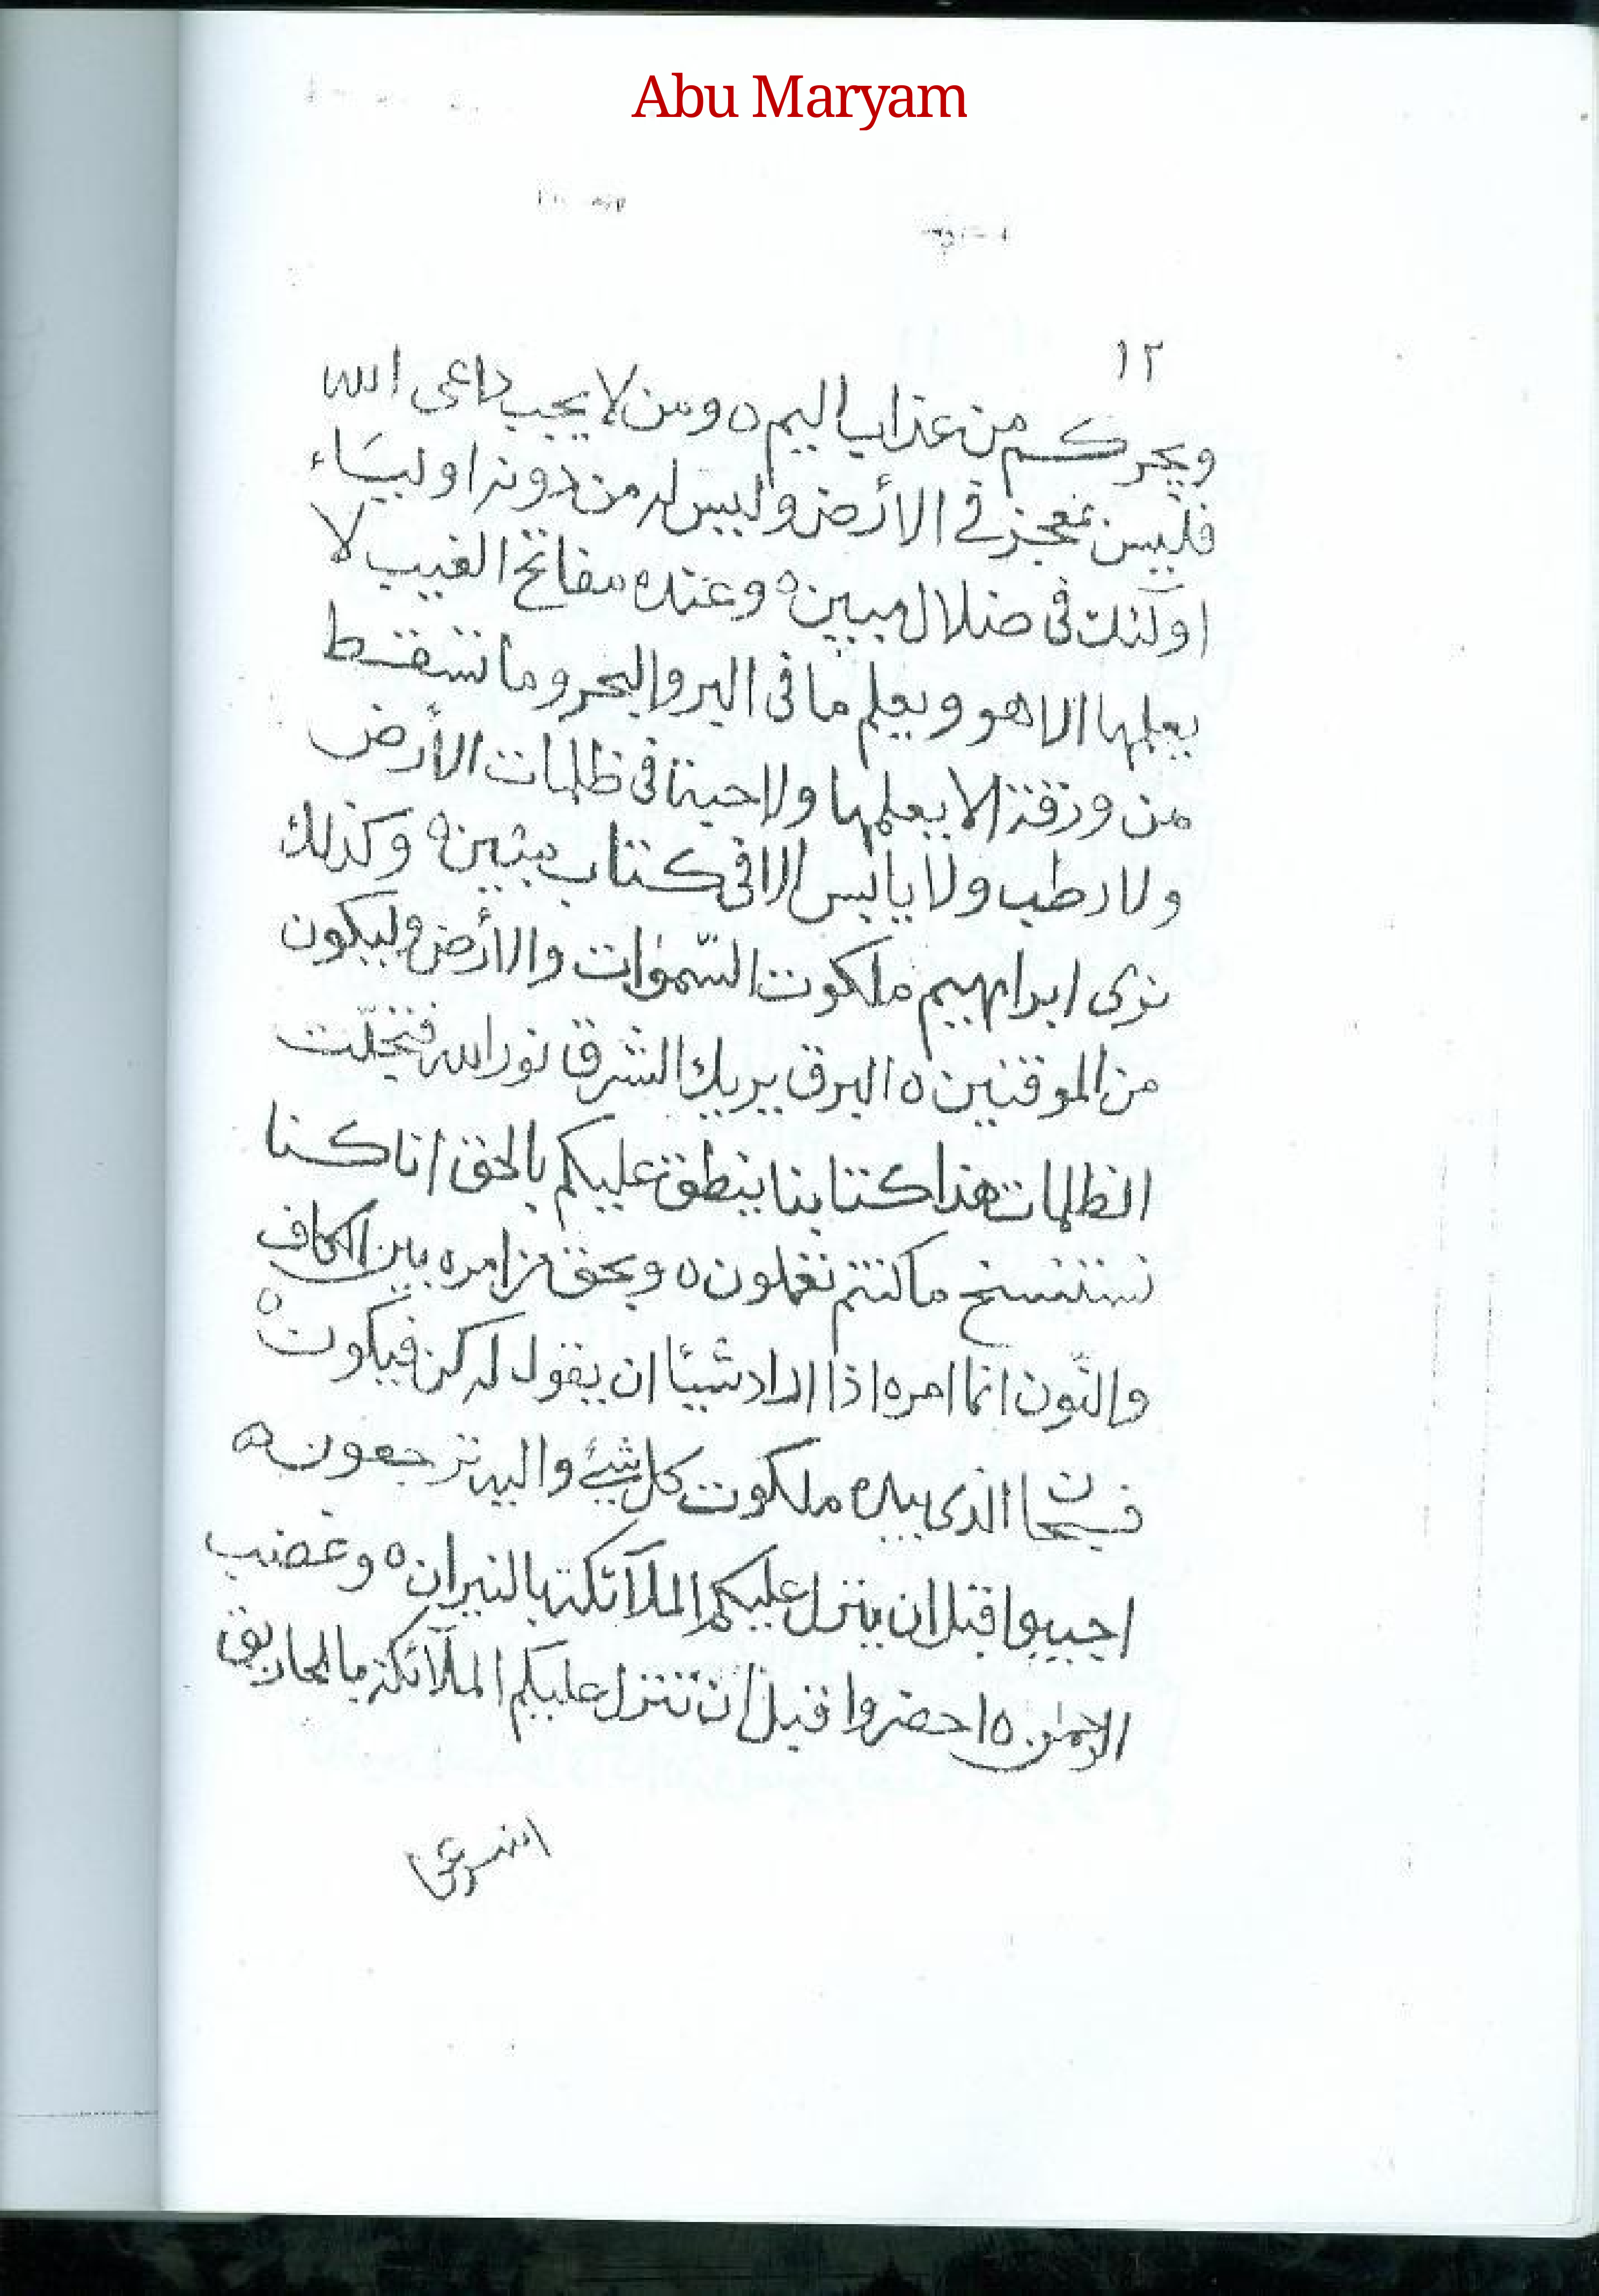 Abu Maryam
١٢
ويجركم من عذاب اليم ٥ ومن لا يجب داعى الله
فليس بمعجز فى الأرض وليس له من دونه اوليَاء
اولٓئك فى ضلال مبين ٥ وعنده مفاتح الغيب لا
يعلمها الا هو ويعلم ما فى البر والبحر وما تسقط
من ورقة الا يعلمها ولا حبة فى ظلمات الأرض
ولا رطب ولا يابس الا فى كتاب مبين ٥ وكذلك
نرى ابراهيم ملكوت السّموٰات والأرض وليكون
من الموقنين ٥ البرق يريك الشرقا نور الله فتجلّت
الظلمات هذا كتابنا ينطق عليكم بالحق انا كنا
نستنسخ ما كنتم تعملون ٥ وبحق من امره بين الكاف
والنّون انما امره اذا اراد شيئا ان يقول له كن فيكون ٥
فسبحان الذى بيده ملكوت كل شيئ واليه ترجعون ٥
اجيبوا قبل ان ينزل عليكم الملآئكة بالنيران ٥ وغضب
الرحمٰن ٥ احضروا قبل ان تنزل عليكم الملآئكة بالمحاريق